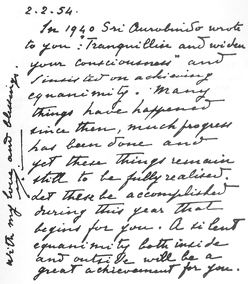 2.2.54.
In 1940 Sri Aurobindo wrote
to you: "Tranquillise and widen
your consciousness" and
insisted on achieving
equanimity. Many
things have happened
since then, much progress
has been done and
yet these things remain
still to be fully realised.
Let these be accomplished
during this year that
begins for you. A silent
equanimity both inside
and outside will be a
great achievement for you.
with my love and blessings.